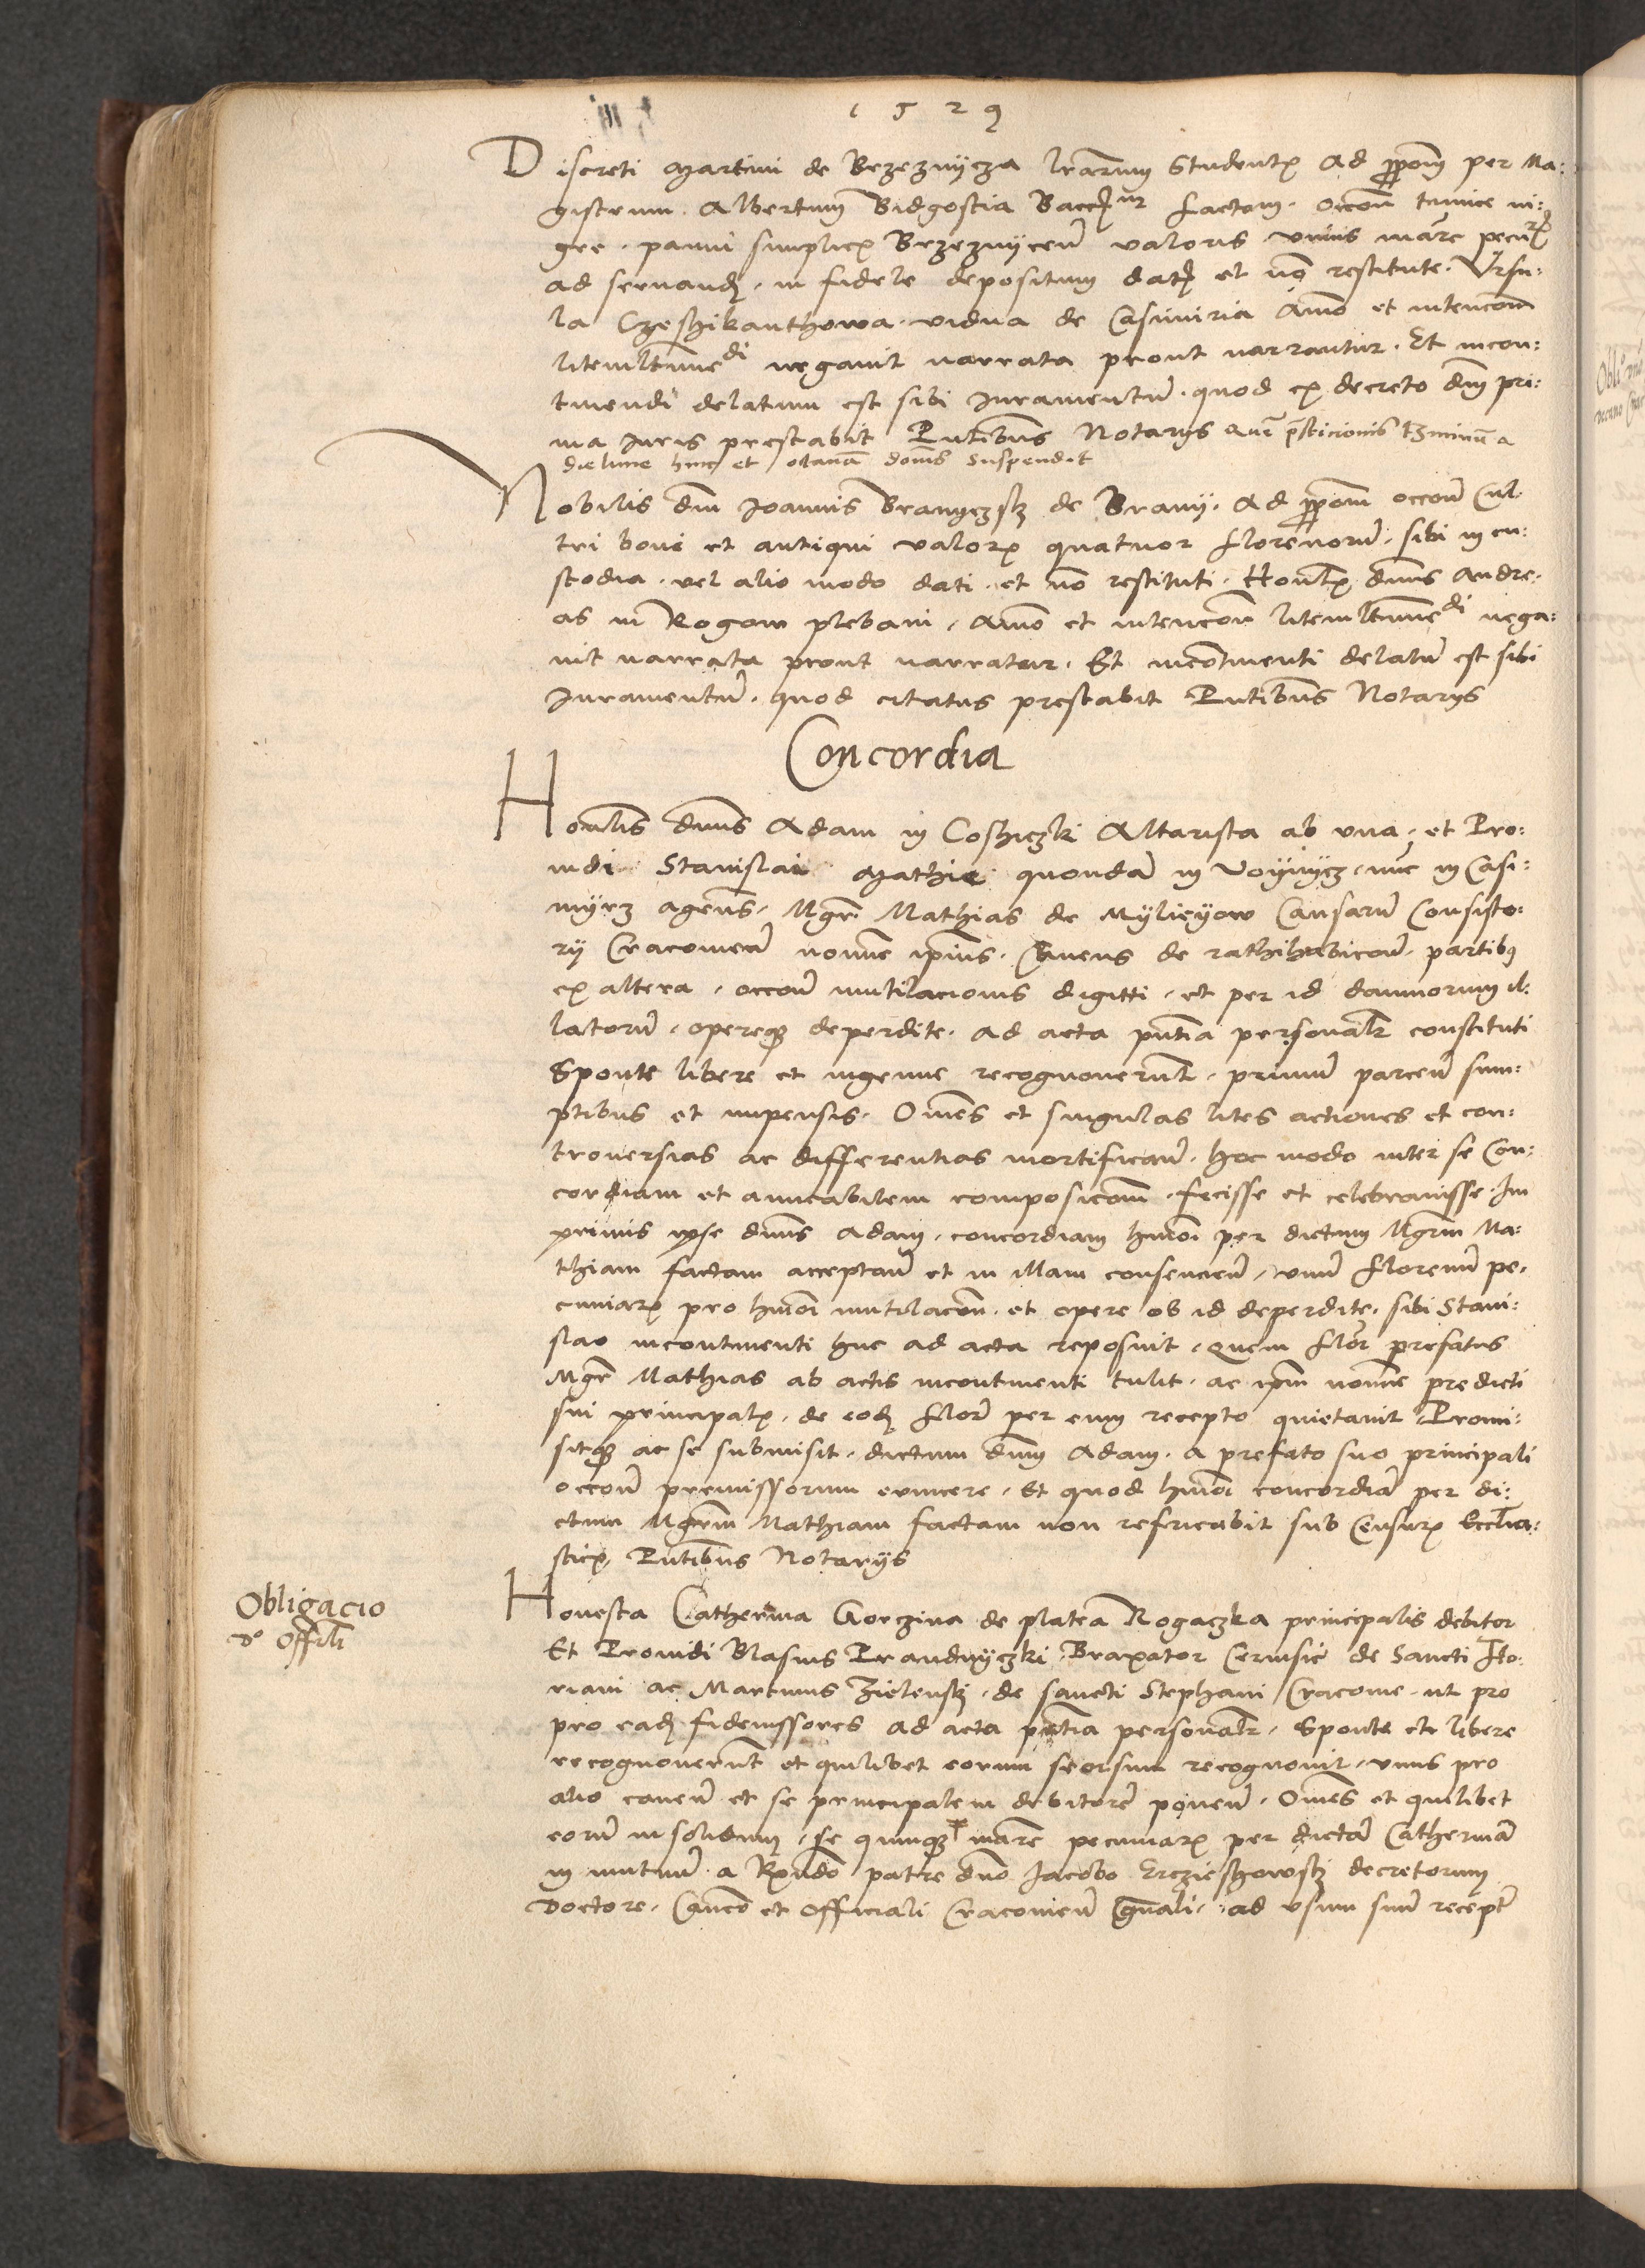 1529
Discreti Martini de Brzeznycza lrarum Studentis Ad pposom per Ma:
gistrum Albertum Bidgostia Bacc factam. occon tunice ni:
gre. panni simplicis Brzeznycen valoris unius marc pecu
ad seruand. in fidele depositum dat et no restitute. Vrsu:
la Czeshikanthowa. vidua de Casimiria Aimo et intencom
litemltunedi negauit narrata prout narrantur. Et incon:
tinendi delatum est sibi Juramentu. quod ex decreto dni pri:
ma Juris prestabit Pntibus Notarys que termini a
die lune hinc et octaua donis suspendit
Nobilis dni Joannis Branyczsky de Brany. Ad pposom occon Cul
tri boni et antiqui valoris quatuor florenoru. sibi in cu:
stodia. vel alio modo dati. et no restituti. Honlis dnus Andre:
as in Rogow plebani. Aimo et intencon litemltunedi nega:
uit narrata prout narratur. Et incotinenti delatu est sibi
Juramentu. quod citatus prestabit Pntibus Notarys
Concordia
Honlis dnus Adam in Coshiczki Altarista ab vna, et Pro:
uidi Stanislai Mathie quonda in Voynycz. nuc in Casi:
myrz agens. Mgri Mathias de Mylieyow Causaru Consisto:
ry Cracouien nomine ipius. Cauens de rathihabicon. partibus
ex altera. occon mutilacionis digitti. et per id damnorum il:
latoru. opereque deperdite. ad acta pntia personalr constituti
Sponte libere et ingenue recognouerunt. primu parcen sum:
ptibus et impensis. Omes et singulas lites actiones et con:
trouersias ac differentias mortifican. hoc modo inter se Con:
cordiam et amicabilem composicom. fecisse et celebrauisse. Im
primis ipse dnus Adam. concordiam hmoi per dictum Mgrm Ma:
thiam factam acceptan et in illam consencien. vnu florenu pe:
cuniaris pro hmoi mutilacon. et opere ob id deperdite. sibi Stani:
slao incontinenti huc ad acta reposuit. Quem flor prefatus
Mgr Mathias ab actis incontinenti tulit. ac ipm nomine predicti
sui principalis. de eod flor per eum recepto quietauit Promi:
sitque ac se submisit. dictum dnum Adam. a prefato suo principali
occon premissorum euincere. Et quod hmoi concordia per di:
ctum Mgrm Mathiam factam non refricabit sub Censuris Ecclia:
sticis, Pntibus Notarys
Obligacio
do offili
Honesta Catherina Gorczina de platea Rogaczka principalis debitor
Et Prouidi Blasius Prandnyczki. Braxator Ceruisie de Sancti Flo:
riani ac Martinus Zielensky. de sancti Stephani Cracouie. ut pro
pro ead fideiussores ad acta pntia personalr. Sponte et libere
recognouerunt et quilibet eorum seorsum recognouit. vnus pro
alio cauen et se principalem debitore ponen. Omes et quilibet
eoru in solidum, se quinque marc pecuniaris per dicta Catherina
in mutuu a Rndo patre dno Jacobo Erczieshowsky decretorum
Doctore. Canco et officiali Cracouien gnali. ad vsum suu recept